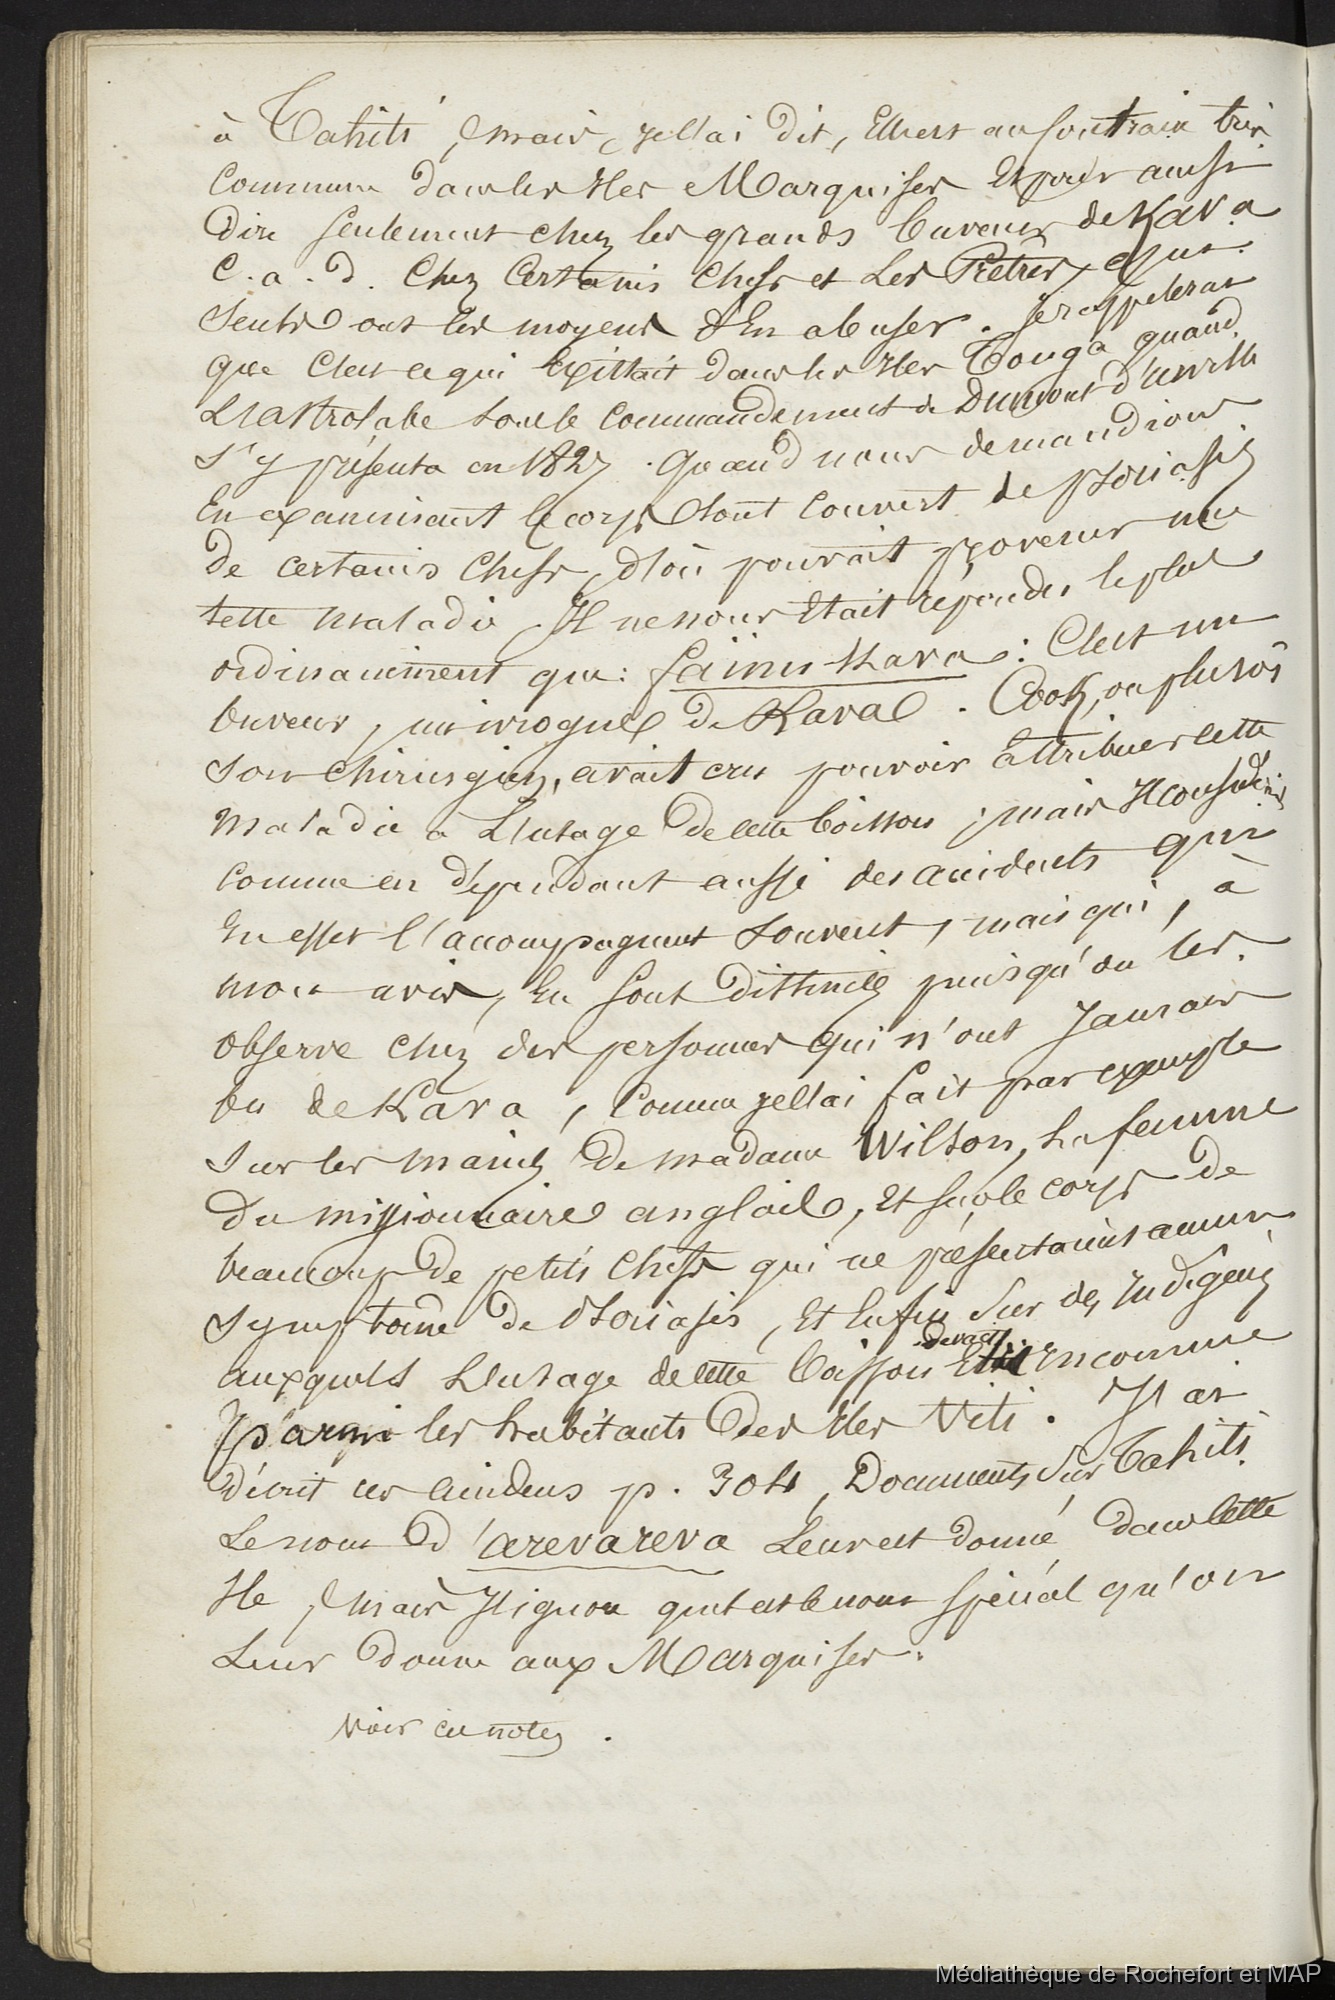 à Tahiti, mais, je l'ai dit, Elle est au contraire très
commune dans les Iles Marquises Et pour ainsi
dire seulement chez les grands buveurs de Kava
C. a. d. Chez Certains Chefs et Les Prêtres, qui
seuls ont les moyens d'En abuser. Je rappelerai
que C'est ce qui Existait dans les Iles Tonga quand
L'astrolabe sous le commandement de Dumont d'urville
s'y présenta en 1827. Quand nous demandions
En examinant le corps tout couvert de psoriasis
de certains Chefs, d'où pouvait provenir une
telle maladie, Il ne nous Etait répondu le plus
ordinairement que: faïnu Kava: C'est un
buveur, un ivrogne de Kava. Cook, ou plutôt
son chirurgien, avait cru pouvoir attribuer cette
maladie à L'usage de cette boisson; mais Il considérait
comme en dépendant aussi des accidents qui
En effet l'accompagnent souvent, mais qui, à
mon avis, En sont distincts puisqu'on les
observe chez des personnes qui n'ont jamais
bu de Kava, comme je l'ai fait par exemple
sur les mains de madame Wilson, la femme
du missionnaire anglais, Et sur le corps de
beaucoup de petits Chefs qui ne présentaient aucun
symptome de Psoriasis, Et Enfin sur des Indigènes
auxquels L'usage de cette boisson devait Etre Inconnue
parmi les habitants des Iles Viti. J'ai
décrit ces accidens p. 304, Documents sur Tahiti.
Le nom d'arevareva Leur est donné dans cette
Ile, mais J'ignore quel est le nom spécial qu'on
Leur donne aux Marquises.
Voir ces notes.
Médiathèque de Rochefort et MAP